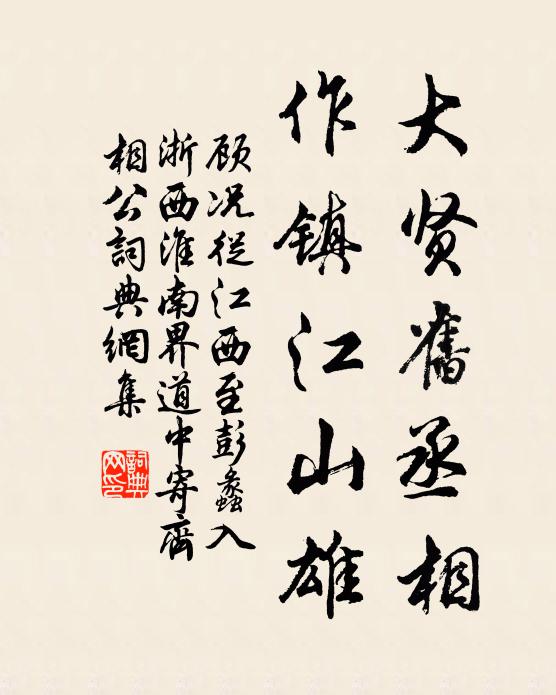 大贤舊丞相
作镇江山雄
顾况從江西至彭蠡入
浙西淮南界道中寄齊
相公詞典網集
詞典
网印